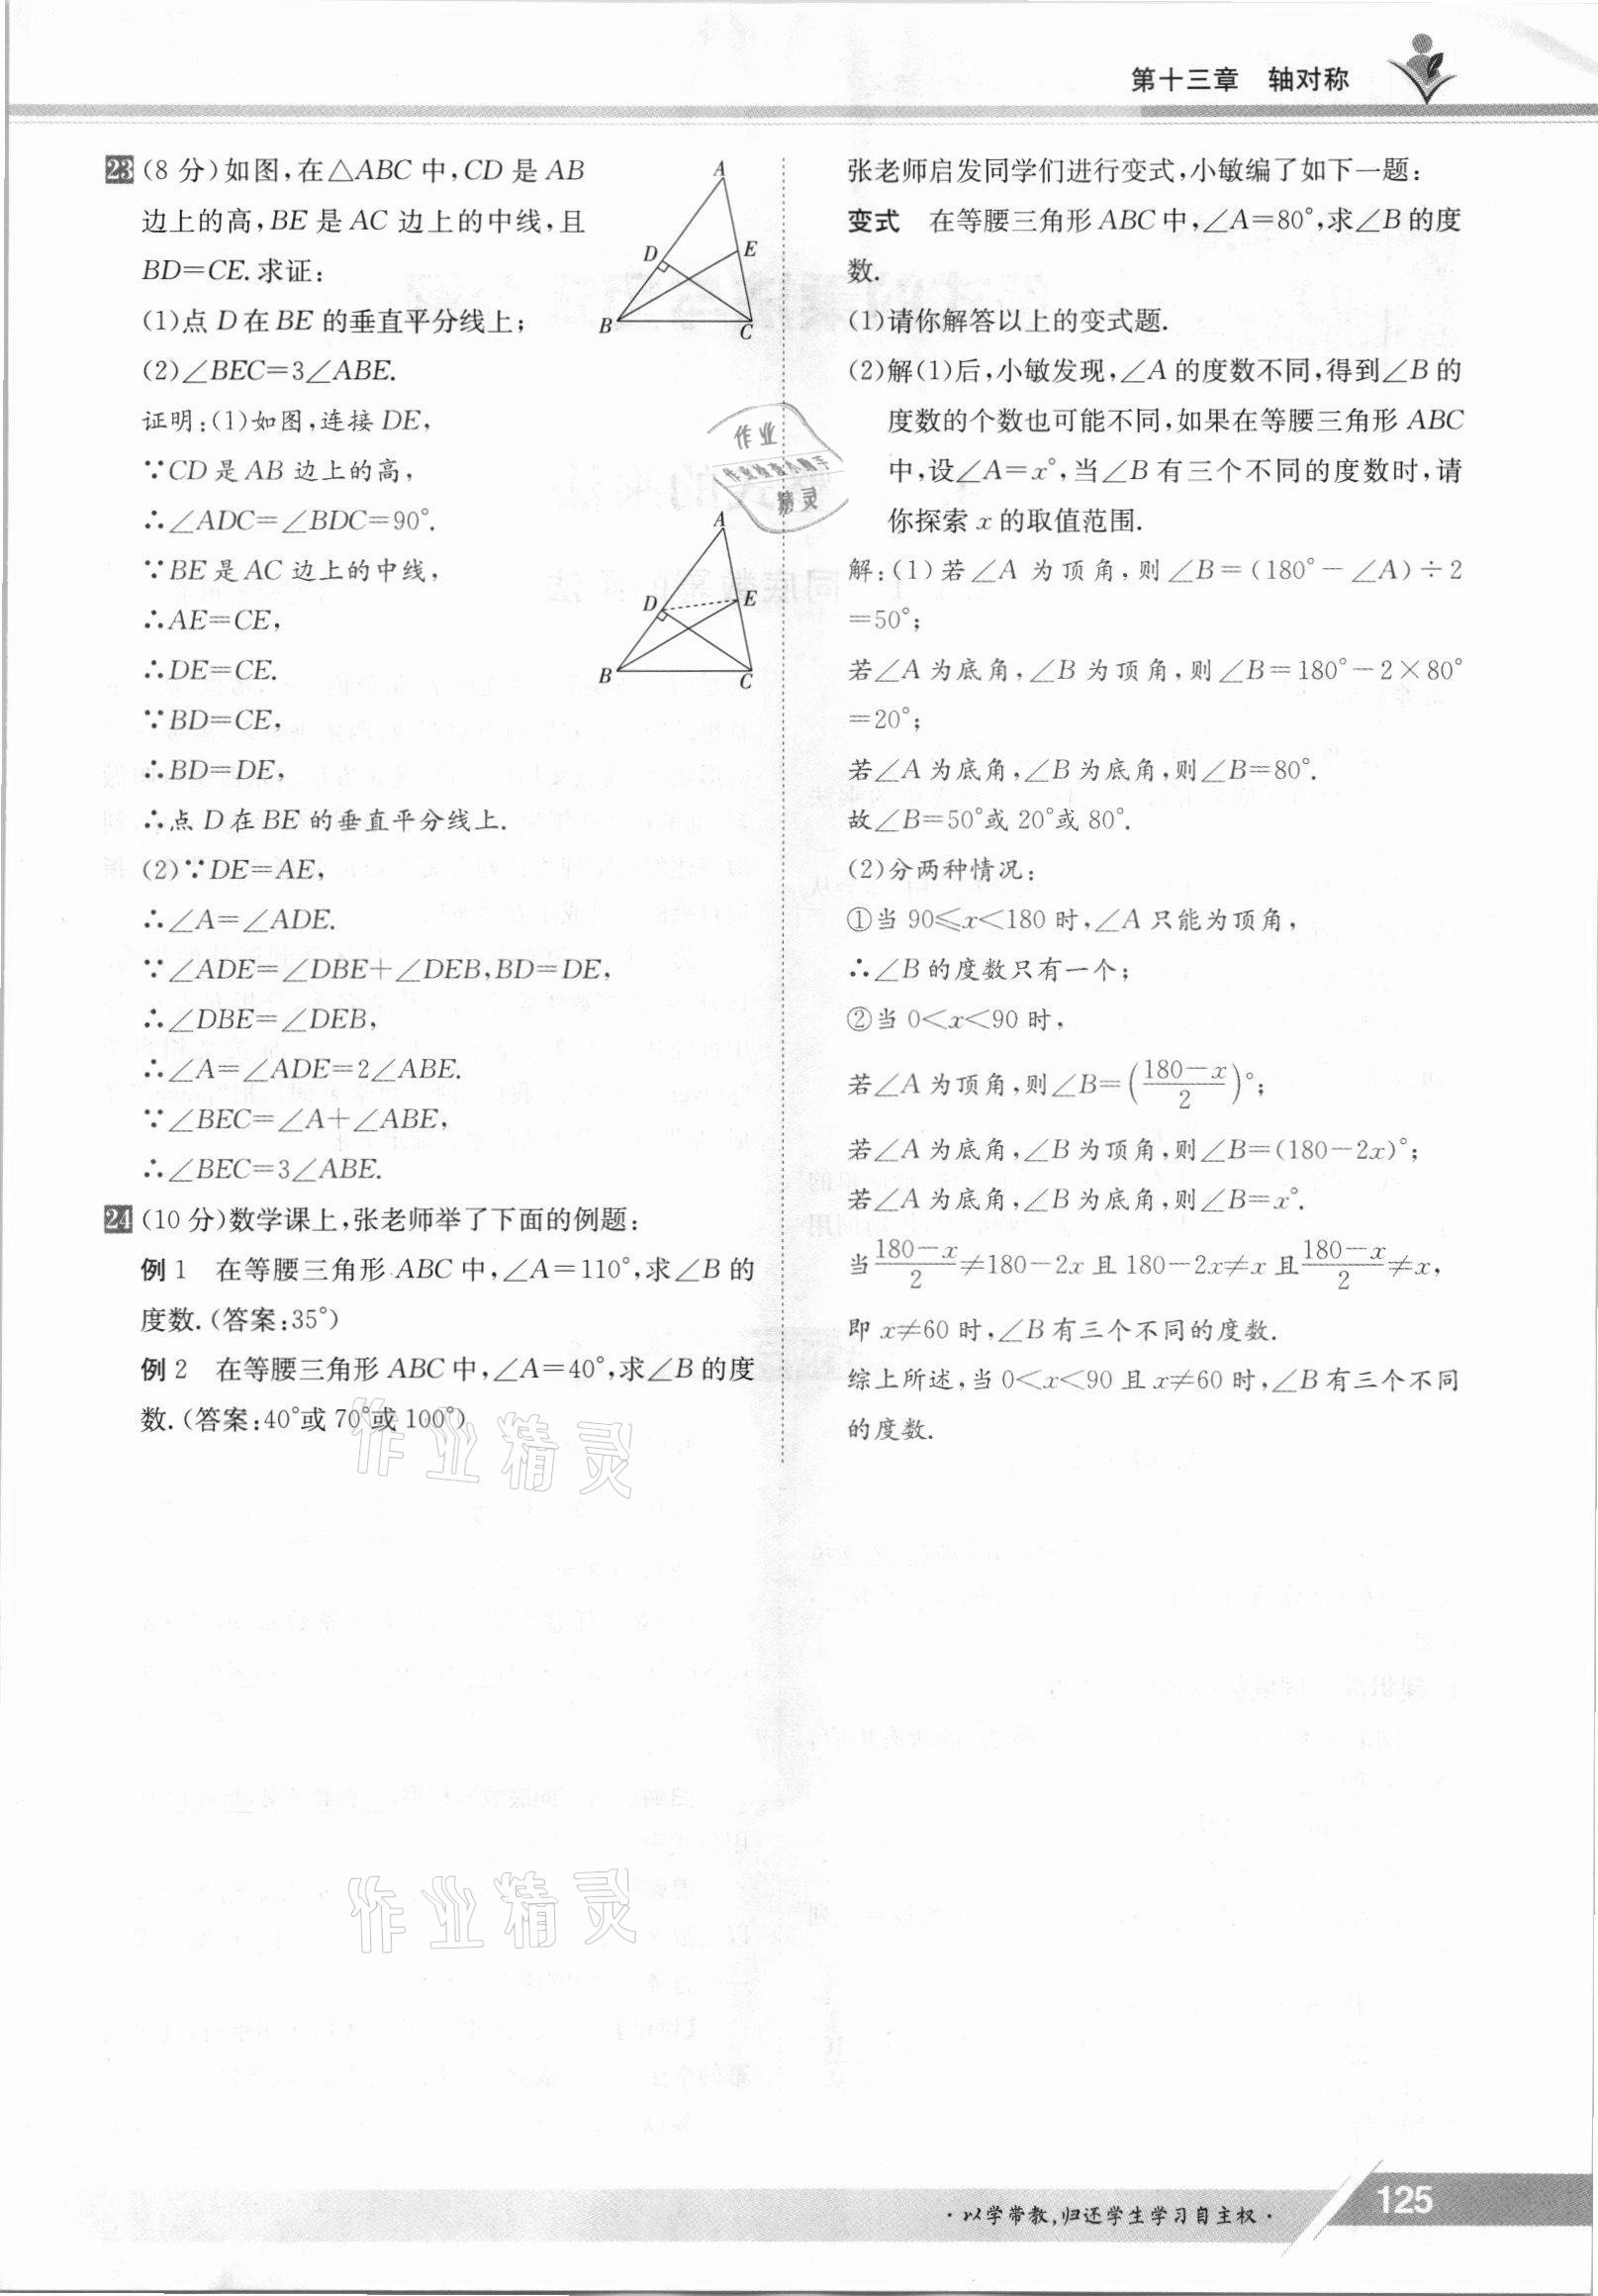 第十三章 轴对称
23 (8分)如图,在△ABC中,CD是AB
边上的高,BE是AC边上的中线,且
BD=CE.求证:
(1)点D在BE的垂直平分线上;
(2)∠BEC=3∠ABE.
证明:(1)如图,连接DE,
∵CD是AB边上的高,
∴∠ADC=∠BDC=90°.
∵BE是AC边上的中线,
∴AE=CE,
∴DE=CE.
∵BD=CE,
∴BD=DE,
∴点D在BE的垂直平分线上.
(2)∵DE=AE,
∴∠A=∠ADE.
∵∠ADE=∠DBE+∠DEB,BD=DE,
∴∠DBE=∠DEB,
∴∠A=∠ADE=2∠ABE.
∵∠BEC=∠A+∠ABE,
∴∠BEC=3∠ABE.
A
D
E
B
C
作业
作业检查小助手
精灵
A
D
E
B
C
24 (10分)数学课上,张老师举了下面的例题:
例1 在等腰三角形ABC中,∠A=110°,求∠B的
度数.(答案:35°)
例2 在等腰三角形ABC中,∠A=40°,求∠B的度
数.(答案:40°或70°或100°)
作业精灵
作业精灵
张老师启发同学们进行变式,小敏编了如下一题:
变式 在等腰三角形ABC中,∠A=80°,求∠B的度
数.
(1)请你解答以上的变式题.
(2)解(1)后,小敏发现,∠A的度数不同,得到∠B的
度数的个数也可能不同,如果在等腰三角形ABC
中,设∠A=x°,当∠B有三个不同的度数时,请
你探索x的取值范围.
解:(1)若∠A为顶角,则∠B=(180°-∠A)÷2
=50°;
若∠A为底角,∠B为顶角,则∠B=180°-2×80°
=20°;
若∠A为底角,∠B为底角,则∠B=80°.
故∠B=50°或20°或80°.
(2)分两种情况:
①当90≤x<180时,∠A只能为顶角,
∴∠B的度数只有一个;
②当0<x<90时,
若∠A为顶角,则∠B=((180-x)/2)°;
若∠A为底角,∠B为顶角,则∠B=(180-2x)°;
若∠A为底角,∠B为底角,则∠B=x°.
当(180-x)/2≠180-2x且180-2x≠x且(180-x)/2≠x,
即x≠60时,∠B有三个不同的度数.
综上所述,当0<x<90且x≠60时,∠B有三个不同
的度数.
·以学带教,归还学生学习自主权·
125